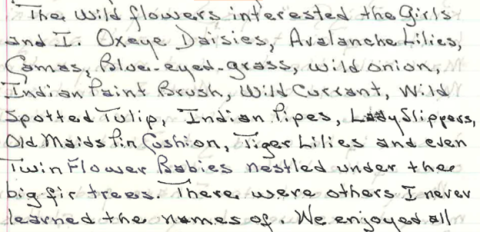 The Wild flowers interested the Girls
and I. Oxeye Daisies, Avalanche Lilies,
Camas, Blue-eyed-grass, Wild onion,
Indian Paint Brush, Wild Currant, Wild
Spotted Tulip, Indian Pipes, Lady Slippers,
Old Maids Pin Cushion, Tiger Lilies and even
Twin Flower Babies nestled under the
big fir trees. There were others I never
learned the names of. We enjoyed all